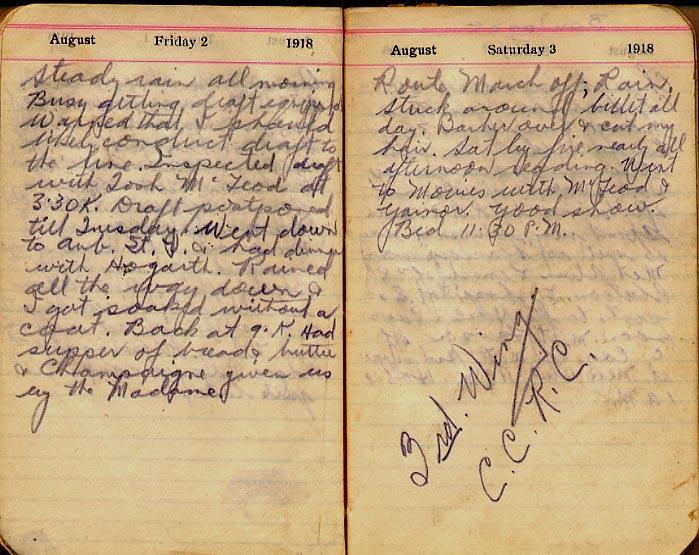 August Friday 2 1918
Steady rain all morning
Busy getting draft equipped
Warned that I should
likely conduct draft to
the line. Inspected draft
with Tosh McLeod at
3:30 K. Draft postponed
till Tuesday. Went down
to Aub. St. V. & had dinner
with Hogarth. Rained
all the way down &
I got soaked without a
coat. Back at 9. K. Had
supper of bread & butter
& Champaigne given us
by the Madame
August Saturday 3 1918
Route March off, Rain.
Stuck around billit all
day. Barber over & cut my
hair. Sat by fire nearly all
afternoon reading. Went
to Movies with McLeod &
Gainor. Good show.
Bed 11:30 P.M.
3rd. Wing
C. C. R. C.